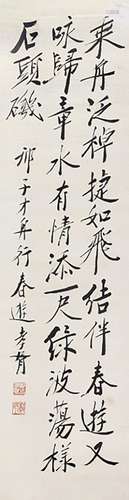 乘舟泛棹捷如飛結伴春遊又
咏歸章水有情添一尺綠波蕩樣
石頭磯 邓子才舟行春遊 孝胥